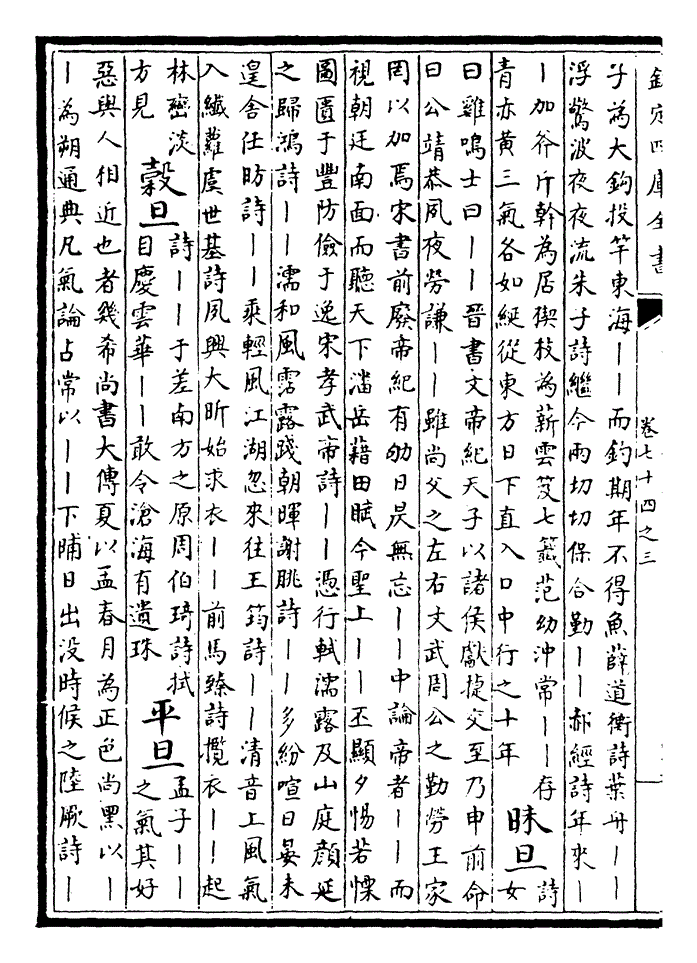 欽定四庫全書
卷七十四之三
子為大鈎投竿東海丨丨而釣期年不得魚薛道衡詩葉舟丨丨
浮驚波夜夜流朱子詩繼今兩切切保合勤丨丨郝經詩年來丨
丨加斧斤幹為居楔枝為薪雲笈七籤范幼沖常丨丨存
青亦黃三氣各如綖從東方日下直入口中行之十年
昧旦
詩
女
曰雞鳴士曰丨丨晉書文帝紀天子以諸侯獻捷交至乃申前命
曰公靖恭夙夜勞謙丨丨雖尚父之左右文武周公之勤勞王家
罔以加焉宋書前廢帝紀有劬日昃無忘丨丨中論帝者丨丨而
視朝廷南面而聽天下潘岳藉田賦今聖上丨丨丕顯夕惕若慄
圖匱于豐防儉于逸宋孝武帝詩丨丨憑行軾濡露及山庭顏延
之歸鴻詩丨丨濡和風霑露踐朝暉謝朓詩丨丨多紛喧日晏未
遑舍任昉詩丨丨乘輕風江湖忽來往王筠詩丨丨清音上風氣
入纖蘿虞世基詩夙興大昕始求衣丨丨前馬臻詩攬衣丨丨起
林密淡
方見
穀旦
詩丨丨于差南方之原周伯琦詩拭
目慶雲華丨丨敢令滄海有遺珠
平旦
孟子丨丨
之氣其好
惡與人相近也者幾希尚書大傳夏以孟春月為正色尚黑以丨
丨為朔通典凡氣論占常以丨丨下晡日出沒時候之陸厥詩丨